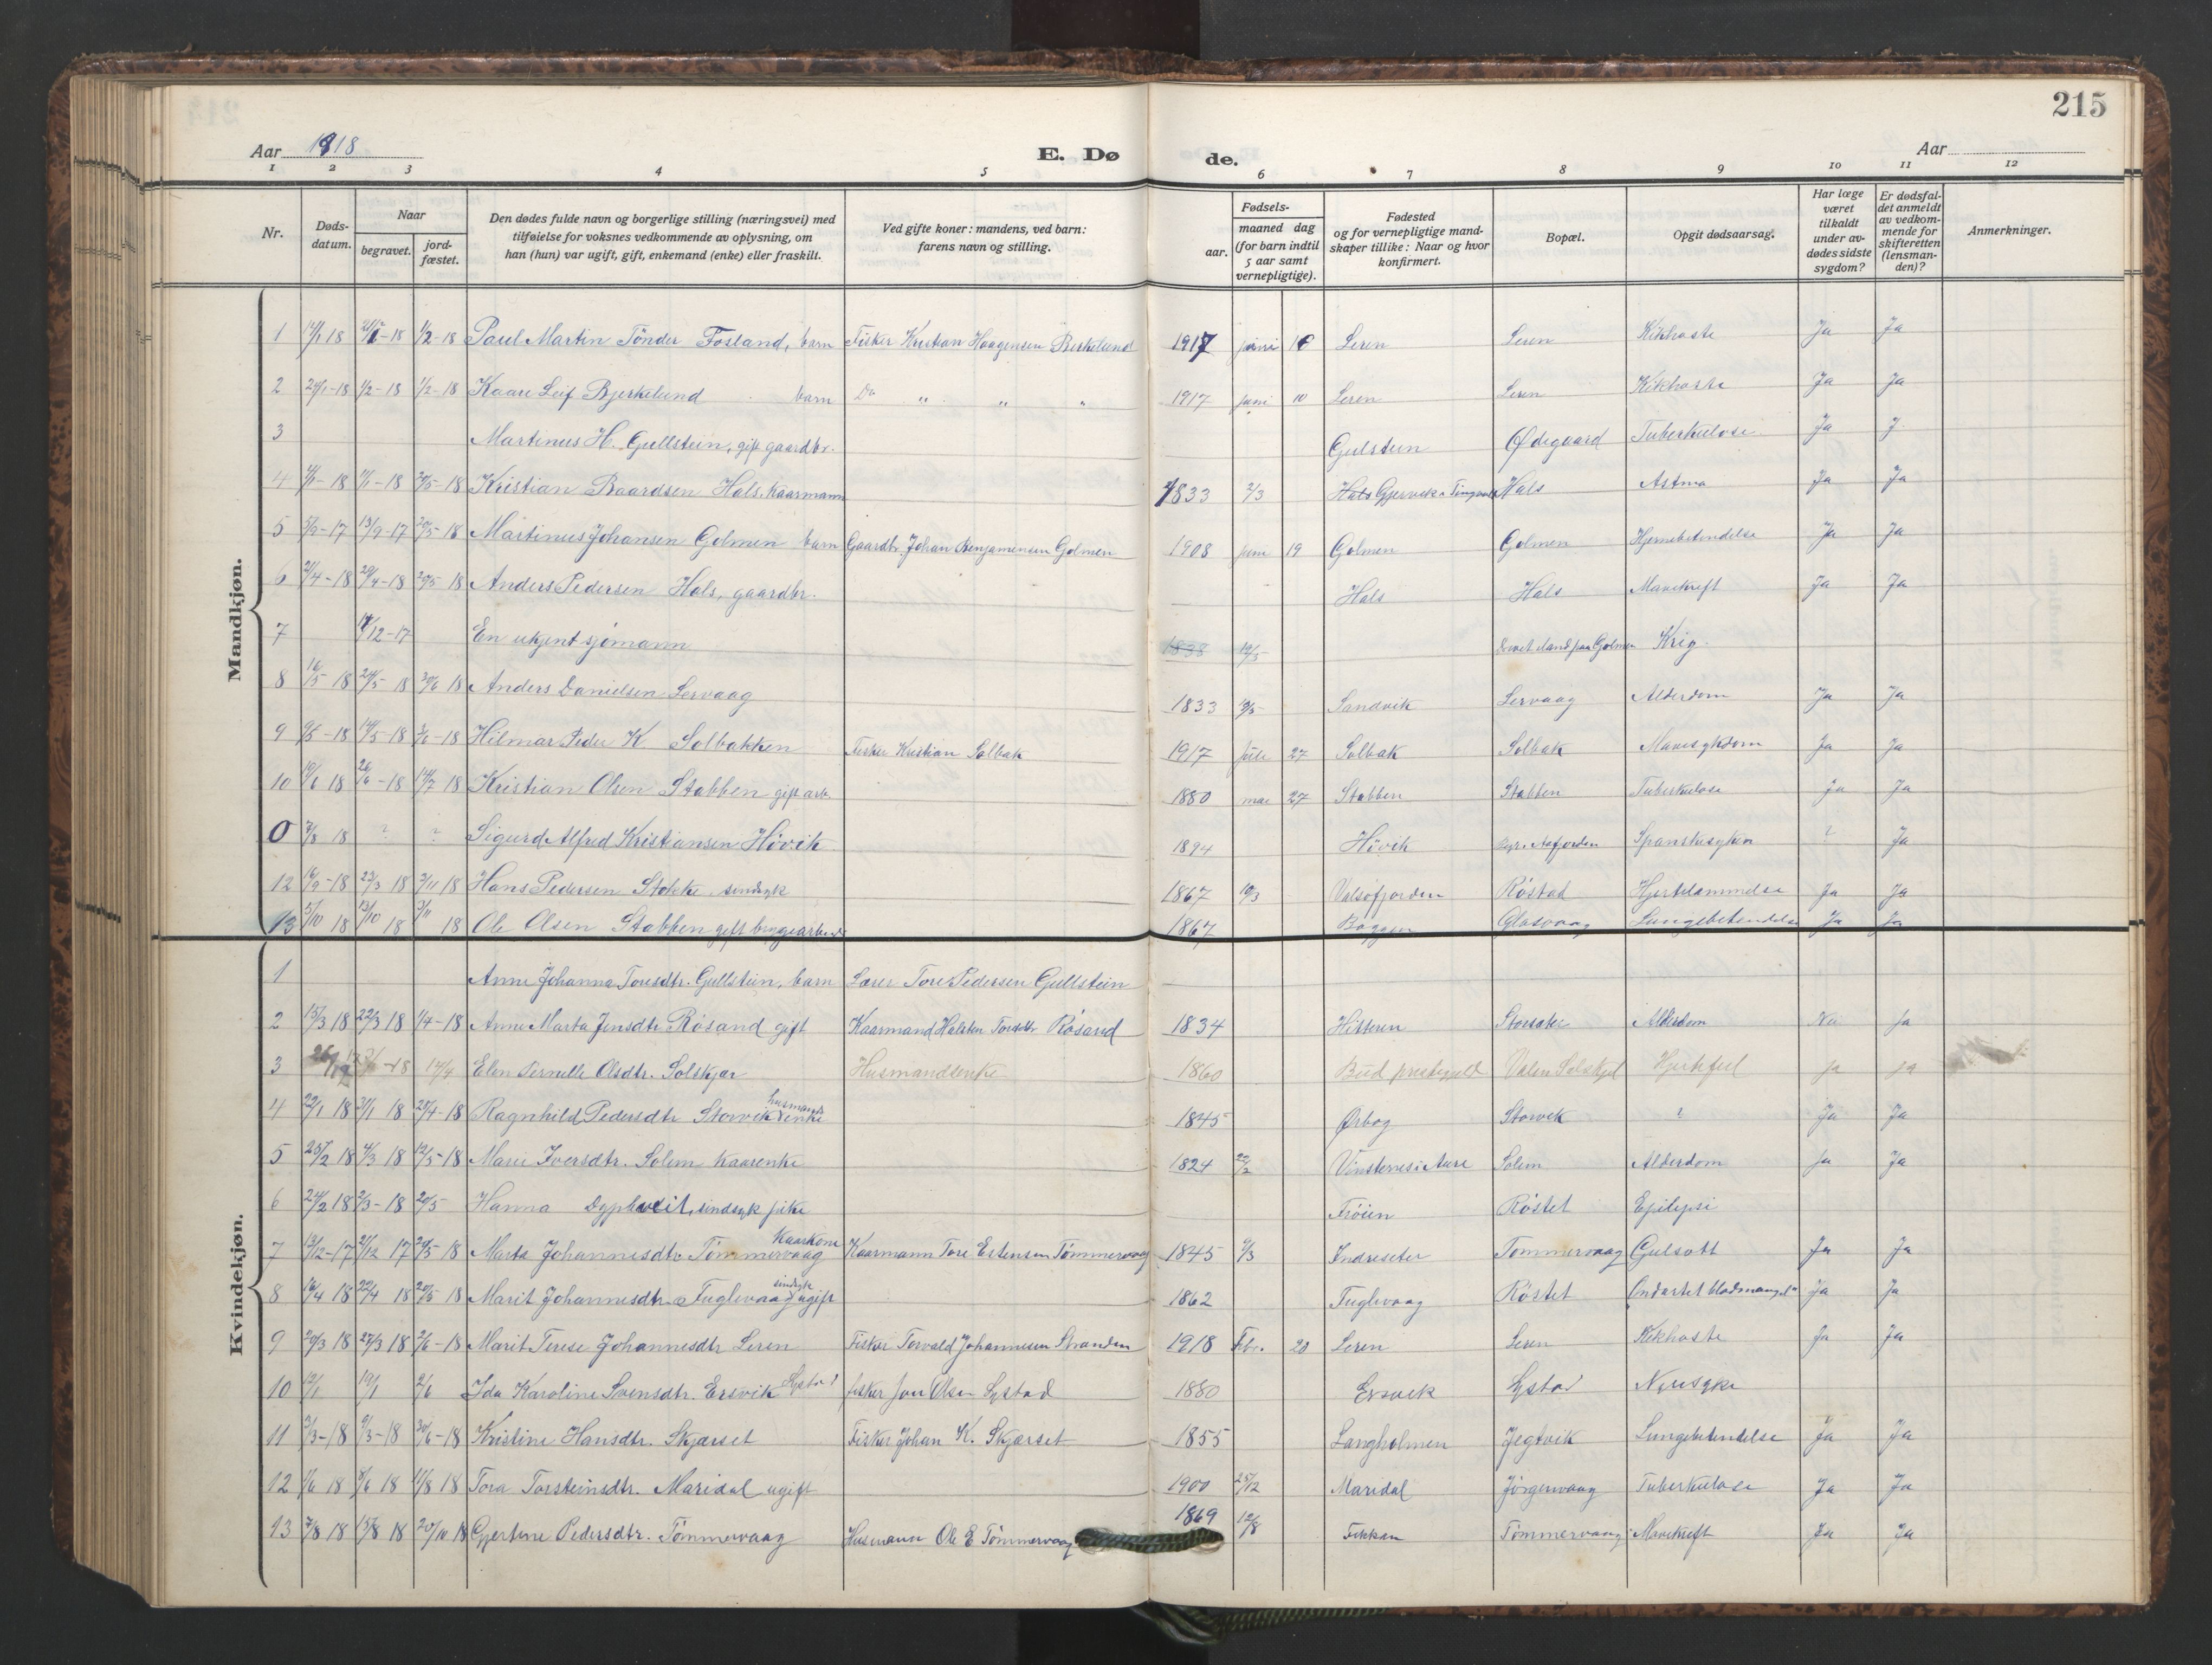 215
Aar 1918
E. Dø
de.
Aar
1 2 3 4 5 6 7 8 9 10 11 12
Nr.
Døds-datum.
Naar
begravet.
jord-fæstet.
Den dødes fulde navn og borgerlige stilling (næringsvei) med tilføielse for voksnes vedkommende av oplysning, om han (hun) var ugift, gift, enkemand (enke) eller fraskilt.
Ved gifte koner: mandens, ved barn: farens navn og stilling.
Fødsels-
aar.
maaned dag (for barn indtil 5 aar samt vernepligtige).
Fødested og for vernepligtige mandskaper tillike: Naar og hvor konfirmert.
Bopæl.
Opgit dødsaarsag.
Har læge været tilkaldt under avdødes sidste sygdom?
Er dødsfaldet anmeldt av vedkommende for skifteretten (lensmanden)?
Anmerkninger.
Mandkjøn.
1 14/1 18 1/2-18 Paul Martin Tönder Fosland, barn Fisker Kristian Haagensen Berkelund 1917 juni Leren Leren Kikhoste Ja Ja
2 24/1-18 1/2-18 1/2-18 Kaare Leif Bjerkelund barn Do " " " 1917 juni 10 Leren Leren Kikhoste Ja Ja
3 Martinus H. Gullstein, gift gaardbr. Gulstein Ødegaard Tuberkulose Ja J.
4 20/5-18 Kristian Baardsen Hals, Kaarmann 1833 2/3 Hals Gjervik Hals Astma Ja Ja
5 5/9-17 13/9-17 20/5-18 Martinus Johansen Golmen barn Gaardbr. Johan Benjamensen Golmen 1908 juni 19 Golmen Golmen Hjernebetendelse Ja Ja
6 21/4-18 29/4-18 20/5 18 Anders Pedersen Hals, gaardbr. Hals Hals Mavekreft Ja Ja
7 12-17 En ukjent sjømann 1838 19/5 Drevet iland paa Golmen Krig.
8 16/5 18 24/5 18 30/6 18 Anders Danielsen Lervaag 1833 Sandvik Lervaag Alderdom Ja Ja
9 14/5-18 2/6-18 Hilmar Peder K. Solbakken Fisker Kristian Solbak 1917 juli 27 Solbak Solbak Mavesykdom Ja Ja
10 19/6 18 26/6-18 14/7 18 Kristian Olsen Stabben gift arb. 1880 mai 27 Stabben Stabben Tuberkulose Ja Ja
0 7/8 18 ? ? Sigurd Alfred Kristiansen Hövik 1894 Hövik Spanskesyken ? Ja
12 16/9-18 3/11 18 Hans Pedersen Stokke, sindsyk 1867 10/3 Valsöfjorden Röstad Hjertelammelse Ja Ja
13 5/10 18 13/10 18 3/11 18 Ole Olsen Stabben gift bryggearbeid 1867 Glasvaag Lungebetendelse Ja Ja
Kvindekjøn.
1 Anne Johanna Toresdtr. Gullstein, barn Lærer Tore Pedersen Gullstein
2 15/3 18 22/3 18 1/4-18 Anne Marta Jensdtr. Rösand gift Kaarmand Halsten Rösand 1834 Hitteren Storsæter Alderdom Nei Ja
3 14/4 Elen Pernelle Olsdtr. Solskjær Husmandsenke 1860 Bud prestegjeld Valen Solskjel Hjertefeil ja ja
4 22/1 18 31/1 18 25/4-18 Ragnhild Pedersdtr Storvik husmandsenke 1845 Ørbog Storvik ? Ja Ja
5 25/2 18 4/3 18 12/5-18 Marie Iversdtr. Solem Kaarenke 1824 22/2 Vinsternes i Aure Solem Alderdom Ja Ja
6 24/2 18 2/3-18 20/5 Hanna Dyphveit, sindsyk pike Fröien Röstet Epilepsi
7 13/12-17 21/12 17 20/5-18 Marta Johannesdtr Tömmervaag Kaarkone Kaarmann Tore Estensen Tömmervaag 1845 9/3 Indreseter Tömmervaag Gulsott Ja Ja
8 16/4 18 22/4 18 20/5 18 Marit Johannesdtr. Fuglevaag sindsyk ugift 1862 Fuglevaag Röstet Ondartet blodmangel Ja Ja
9 20/3 18 27/3 18 2/6-18 Marit Terese Johannesdtr Leren Fisker Torvald Johannesen Stranden 1918 Febr. 20 Leren Leren Kikhoste Ja Ja
10 12/1 19/1 2/6 Ida Karoline Svensdtr. Ersvik Lystad fisker Jon Olsen Lystad 1880 Ersvik Lystad Nyresyke
11 3/3-18 9/3-18 30/6-18 Kristine Hansdtr. Skjarset Fisker Johan K. Skjarset 1855 Langholmen Jegtvik Lungebetendelse Ja Ja
12 1/6 18 8/6 18 11/8 18 Tora Torsteinsdtr. Maridal ugift 1900 25/12 Maridal Jörgenvaag Tuberkulose Ja Ja
13 7/8 18 15/8 18 20/10 18 Gjertine Pedersdtr. Tömmervaag Husmann Ole E Tömmervaag 1869 12/8 Fikkan Tömmervaag Mavekreft Ja Ja